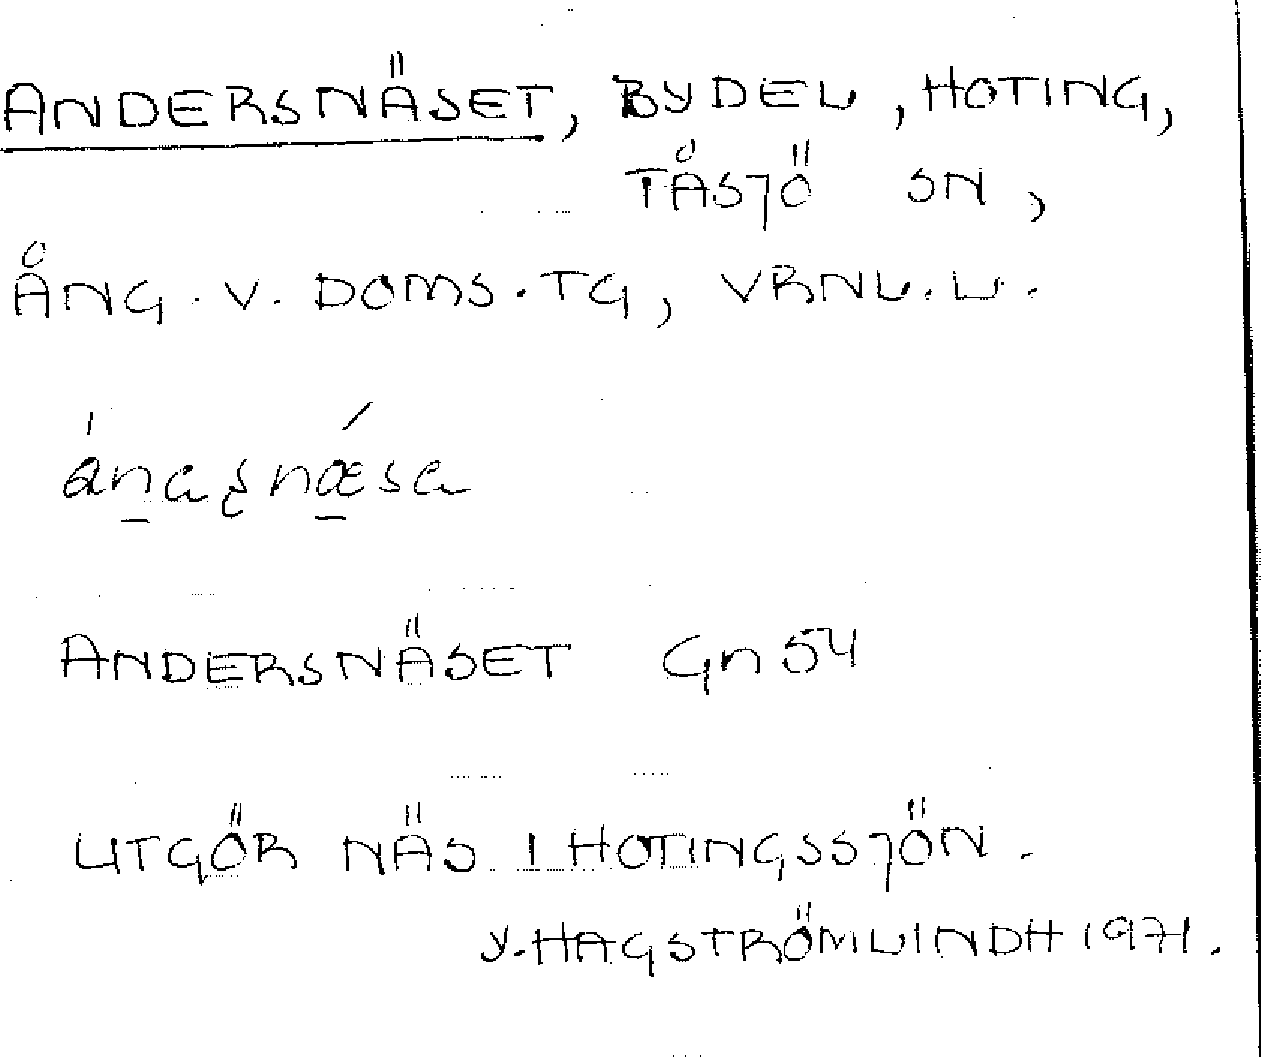 ANDERSNÄSET, BYDEL, HOTING,
TÅSJÖ SN,
ÅNG. V. DOMS. TG, VRNL. L.
ANDERSNÄSET Gn 54
UTGÖR NÄS I HOTINGSSJÖN.
Y. HAGSTRÖM LINDH 1971.